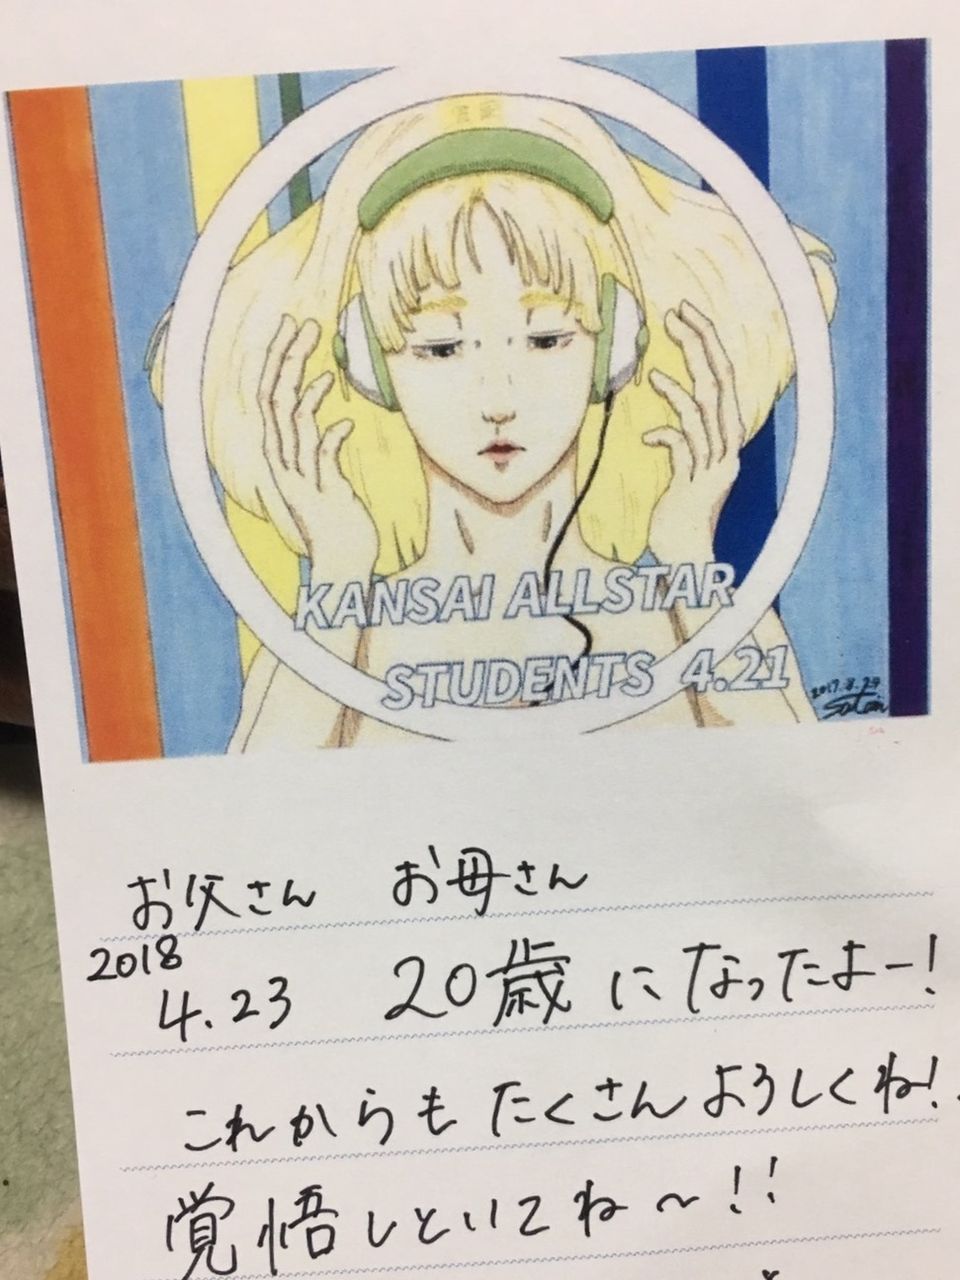 KANSAI ALLSTAR
STUDENTS 4.21
2017.8.29
お父さん お母さん
2018
4.23 20歳になったよー!
これからもたくさんようしくね!
覚悟しといてね〜!!